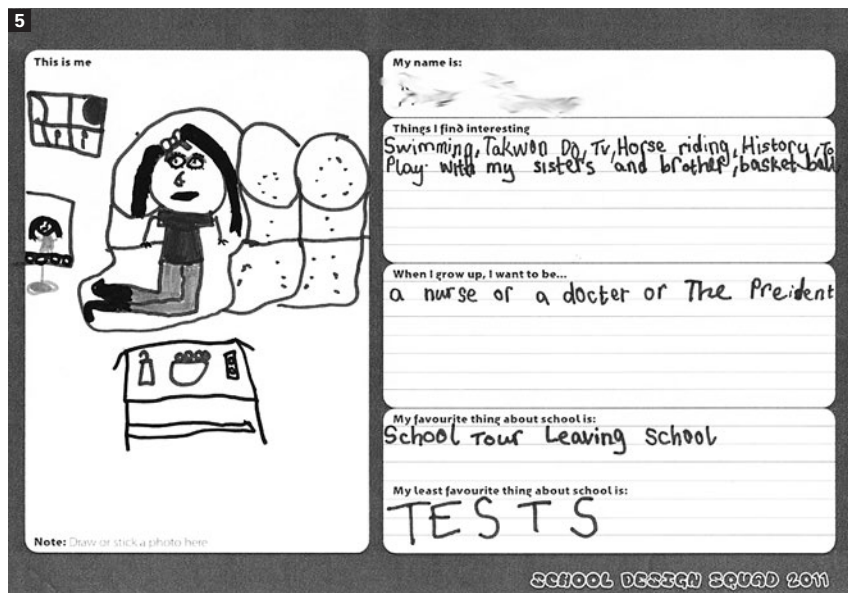 5
This is me
Note: Draw or stick a photo here
My name is:
Things I find interesting
Swimming, Takwon Do, Tv, Horse riding, History, To
Play with my sisters and brother, basket ball
When I grow up, I want to be...
a nurse or a docter or The Preident
My favourite thing about school is:
School Tour Leaving school
My least favourite thing about school is:
TESTS
SCHOOL DESIGN SQUAD 2011